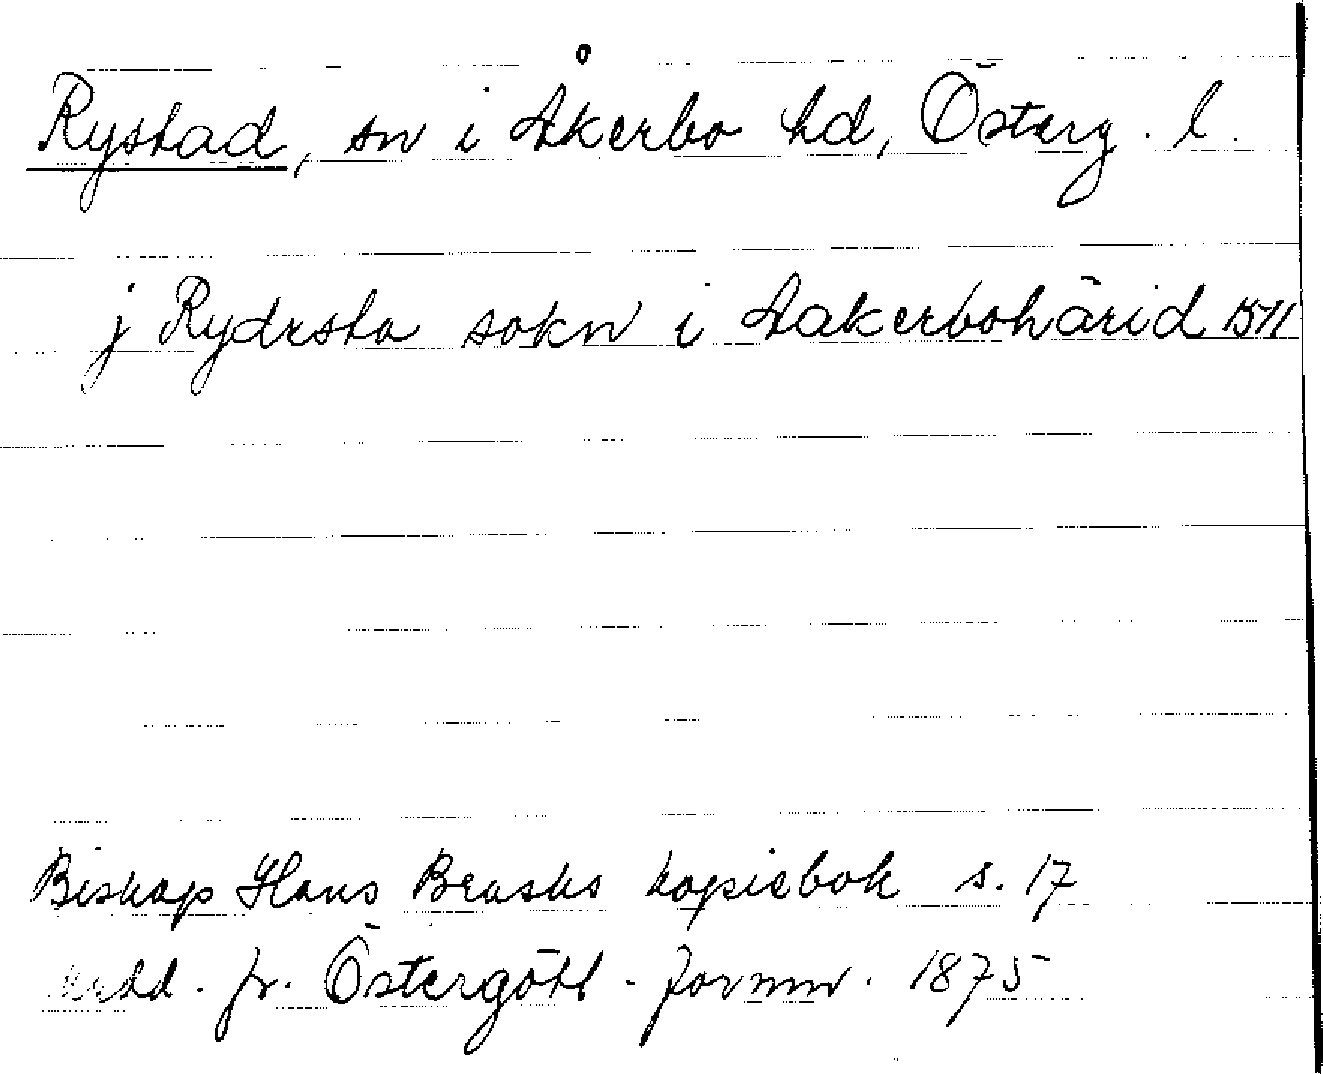 Rystad, sn i Åkerbo hd, Österg. l.
j Rydrsta sokn i Aakerbohärid 1511
Biskop Hans Brasks kopiebok s. 17
Medd. fr. Östergötl. fornm. 1875